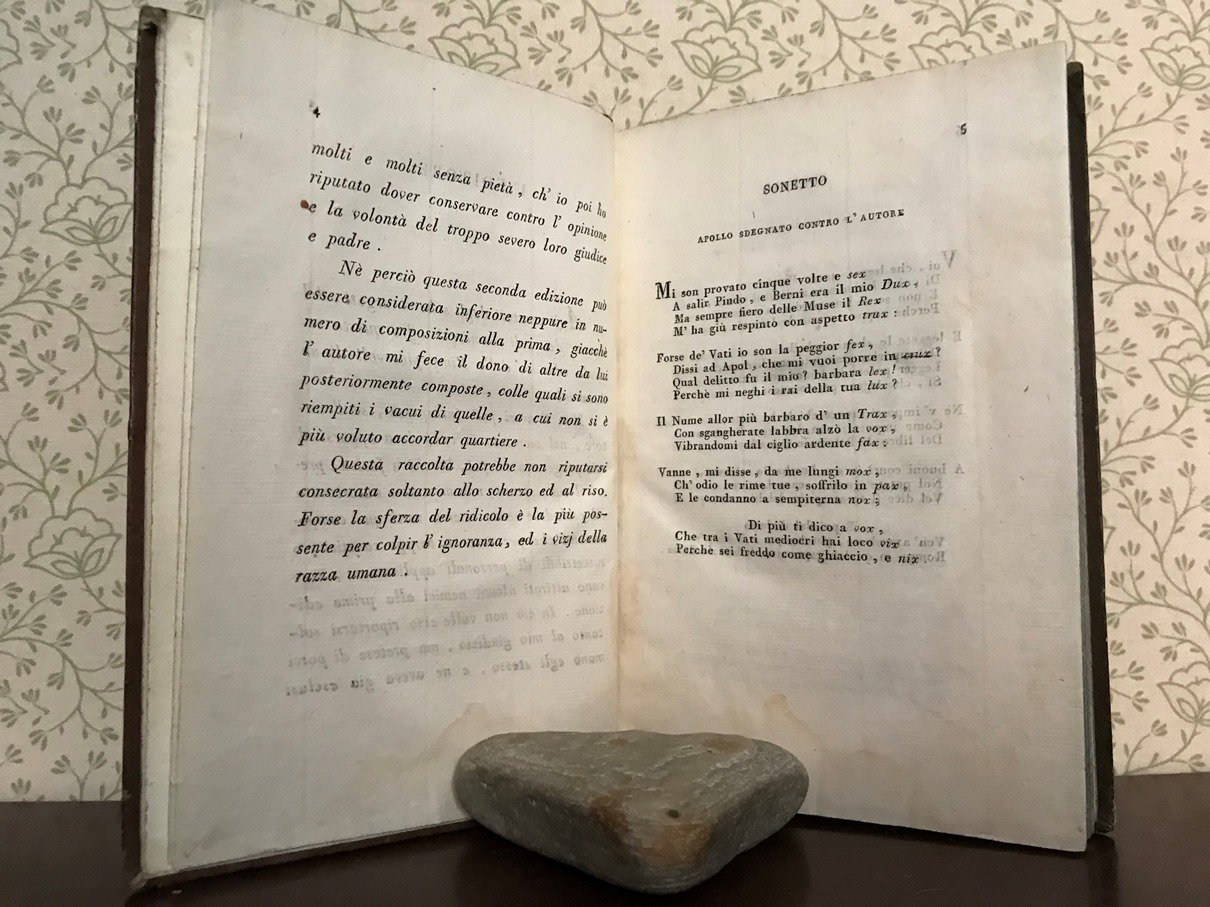 4
molti e molti senza pietà, ch' io poi ho
riputato dover conservare contro l' opinione
e la volontà del troppo severo loro giudice
e padre.
Nè perciò questa seconda edizione può
essere considerata inferiore neppure in nu-
mero di composizioni alla prima, giacchè
l' autore mi fece il dono di altre da lui
posteriormente composte, colle quali si sono
riempiti i vacui di quelle, a cui non si è
più voluto accordar quartiere.
Questa raccolta potrebbe non riputarsi
consecrata soltanto allo scherzo ed al riso.
Forse la sferza del ridicolo è la più pos-
sente per colpir l' ignoranza, ed i vizj della
razza umana.
5
SONETTO
APOLLO SDEGNATO CONTRO L' AUTORE
Mi son provato cinque volte e sex
A salir Pindo, e Berni era il mio Dux,
Ma sempre fiero delle Muse il Rex
M' ha giù respinto con aspetto trux:
Forse de' Vati io son la peggior fex,
Dissi ad Apol, che mi vuoi porre in crux?
Qual delitto fu il mio? barbara lex!
Perchè mi neghi i rai della tua lux?
Il Nume allor più barbaro d' un Trax,
Con sgangherate labbra alzò la vox,
Vibrandomi dal ciglio ardente fax:
Vanne, mi disse, da me lungi mox,
Ch' odio le rime tue, soffrilo in pax,
E le condanno a sempiterna nox;
Di più ti dico a vox,
Che tra i Vati mediocri hai loco vix
Perchè sei freddo come ghiaccio, e nix